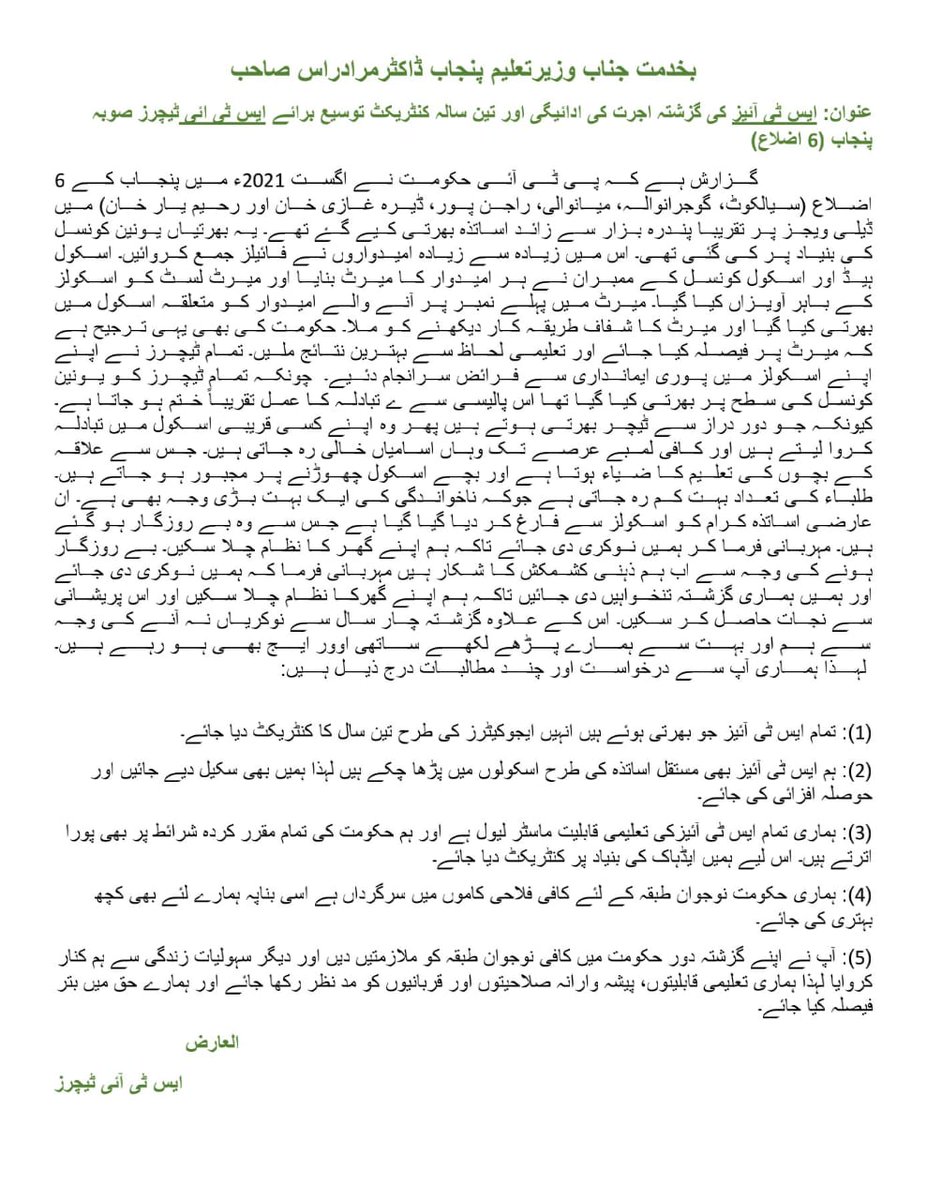 بخدمت جناب وزیرتعلیم پنجاب ڈاکٹرمرادراس صاحب
عنوان: ایس ٹی آئیز کی گزشتہ اجرت کی ادائیگی اور تین سالہ کنٹریکٹ توسیع برائے ایس ٹی ائی ٹیچرز صوبہ
پنجاب (6 اضلاع)
گزارش ہے کہ پی ٹی آئی حکومت نے اگست 2021ء میں پنجاب کے 6
اضلاع (سیالکوٹ، گوجرانوالہ، میانوالی، راجن پور، ڈیرہ غازی خان اور رحیم یار خان) میں
ڈیلی ویجز پر تقریبا پندرہ ہزار سے زائد اساتذہ بھرتی کیے گئے تھے۔ یہ بھرتیاں یونین کونسل
کی بنیاد پر کی گئی تھی۔ اس میں زیادہ سے زیادہ امیدواروں نے فائیلز جمع کروائیں۔ اسکول
ہیڈ اور اسکول کونسل کے ممبران نے ہر امیدوار کا میرٹ بنایا اور میرٹ لسٹ کو اسکولز
کے باہر آویزاں کیا گیا۔ میرٹ میں پہلے نمبر پر آنے والے امیدوار کو متعلقہ اسکول میں
بھرتی کیا گیا اور میرٹ کا شفاف طریقہ کار دیکھنے کو ملا۔ حکومت کی بھی یہی ترجیح ہے
کہ میرٹ پر فیصلہ کیا جائے اور تعلیمی لحاظ سے بہترین نتائج ملیں۔ تمام ٹیچرز نے اپنے
اپنے اسکولز میں پوری ایمانداری سے فرائض سرانجام دئیے۔ چونکہ تمام ٹیچرز کو یونین
کونسل کی سطح پر بھرتی کیا گیا تھا اس پالیسی سے ے تبادلہ کا عمل تقریباً ختم ہو جاتا ہے۔
کیونکہ جو دور دراز سے ٹیچر بھرتی ہوتے ہیں پھر وہ اپنے کسی قریبی اسکول میں تبادلہ
کروا لیتے ہیں اور کافی لمبے عرصے تک وہاں اسامیاں خالی رہ جاتی ہیں۔ جس سے علاقہ
کے بچوں کی تعلیم کا ضیاء ہوتا ہے اور بچے اسکول چھوڑنے پر مجبور ہو جاتے ہیں۔
طلباء کی تعداد بہت کم رہ جاتی ہے جوکہ ناخواندگی کی ایک بہت بڑی وجہ بھی ہے۔ ان
عارضی اساتذہ کرام کو اسکولز سے فارغ کر دیا گیا گیا ہے جس سے وہ بے روزگار ہو گئے
ہیں۔ مہربانی فرما کر ہمیں نوکری دی جائے تاکہ ہم اپنے گھر کا نظام چلا سکیں۔ بے روزگار
ہونے کی وجہ سے اب ہم ذہنی کشمکش کا شکار ہیں مہربانی فرما کہ ہمیں نوکری دی جائے
اور ہمیں ہماری گزشتہ تنخواہیں دی جائیں تاکہ ہم اپنے گھرکا نظام چلا سکیں اور اس پریشانی
سے نجات حاصل کر سکیں۔ اس کے علاوہ گزشتہ چار سال سے نوکریاں نہ آنے کی وجہ
سے ہم اور بہت سے ہمارے پڑھے لکھے ساتھی اوور ایج بھی ہو رہے ہیں۔
لہذا ہماری آپ سے درخواست اور چند مطالبات درج ذیل ہیں:
(1): تمام ایس ٹی آئیز جو بھرتی ہوئے ہیں انہیں ایجوکیٹرز کی طرح تین سال کا کنٹریکٹ دیا جائے۔
(2): ہم ایس ٹی آئیز بھی مستقل اساتذہ کی طرح اسکولوں میں پڑھا چکے ہیں لہذا ہمیں بھی سکیل دیے جائیں اور
حوصلہ افزائی کی جائے۔
(3): ہماری تمام ایس ٹی آئیزکی تعلیمی قابلیت ماسٹر لیول ہے اور ہم حکومت کی تمام مقرر کردہ شرائط پر بھی پورا
اترتے ہیں۔ اس لیے ہمیں ایڈہاک کی بنیاد پر کنٹریکٹ دیا جائے۔
(4): ہماری حکومت نوجوان طبقہ کے لئے کافی فلاحی کاموں میں سرگرداں ہے اسی بناپہ ہمارے لئے بھی کچھ
بہتری کی جائے۔
(5): آپ نے اپنے گزشتہ دور حکومت میں کافی نوجوان طبقہ کو ملازمتیں دیں اور دیگر سہولیات زندگی سے ہم کنار
کروایا لہذا ہماری تعلیمی قابلیتوں، پیشہ وارانہ صلاحیتوں اور قربانیوں کو مد نظر رکھا جائے اور ہمارے حق میں بتر
فیصلہ کیا جائے۔
العارض
ایس ٹی آئی ٹیچرز